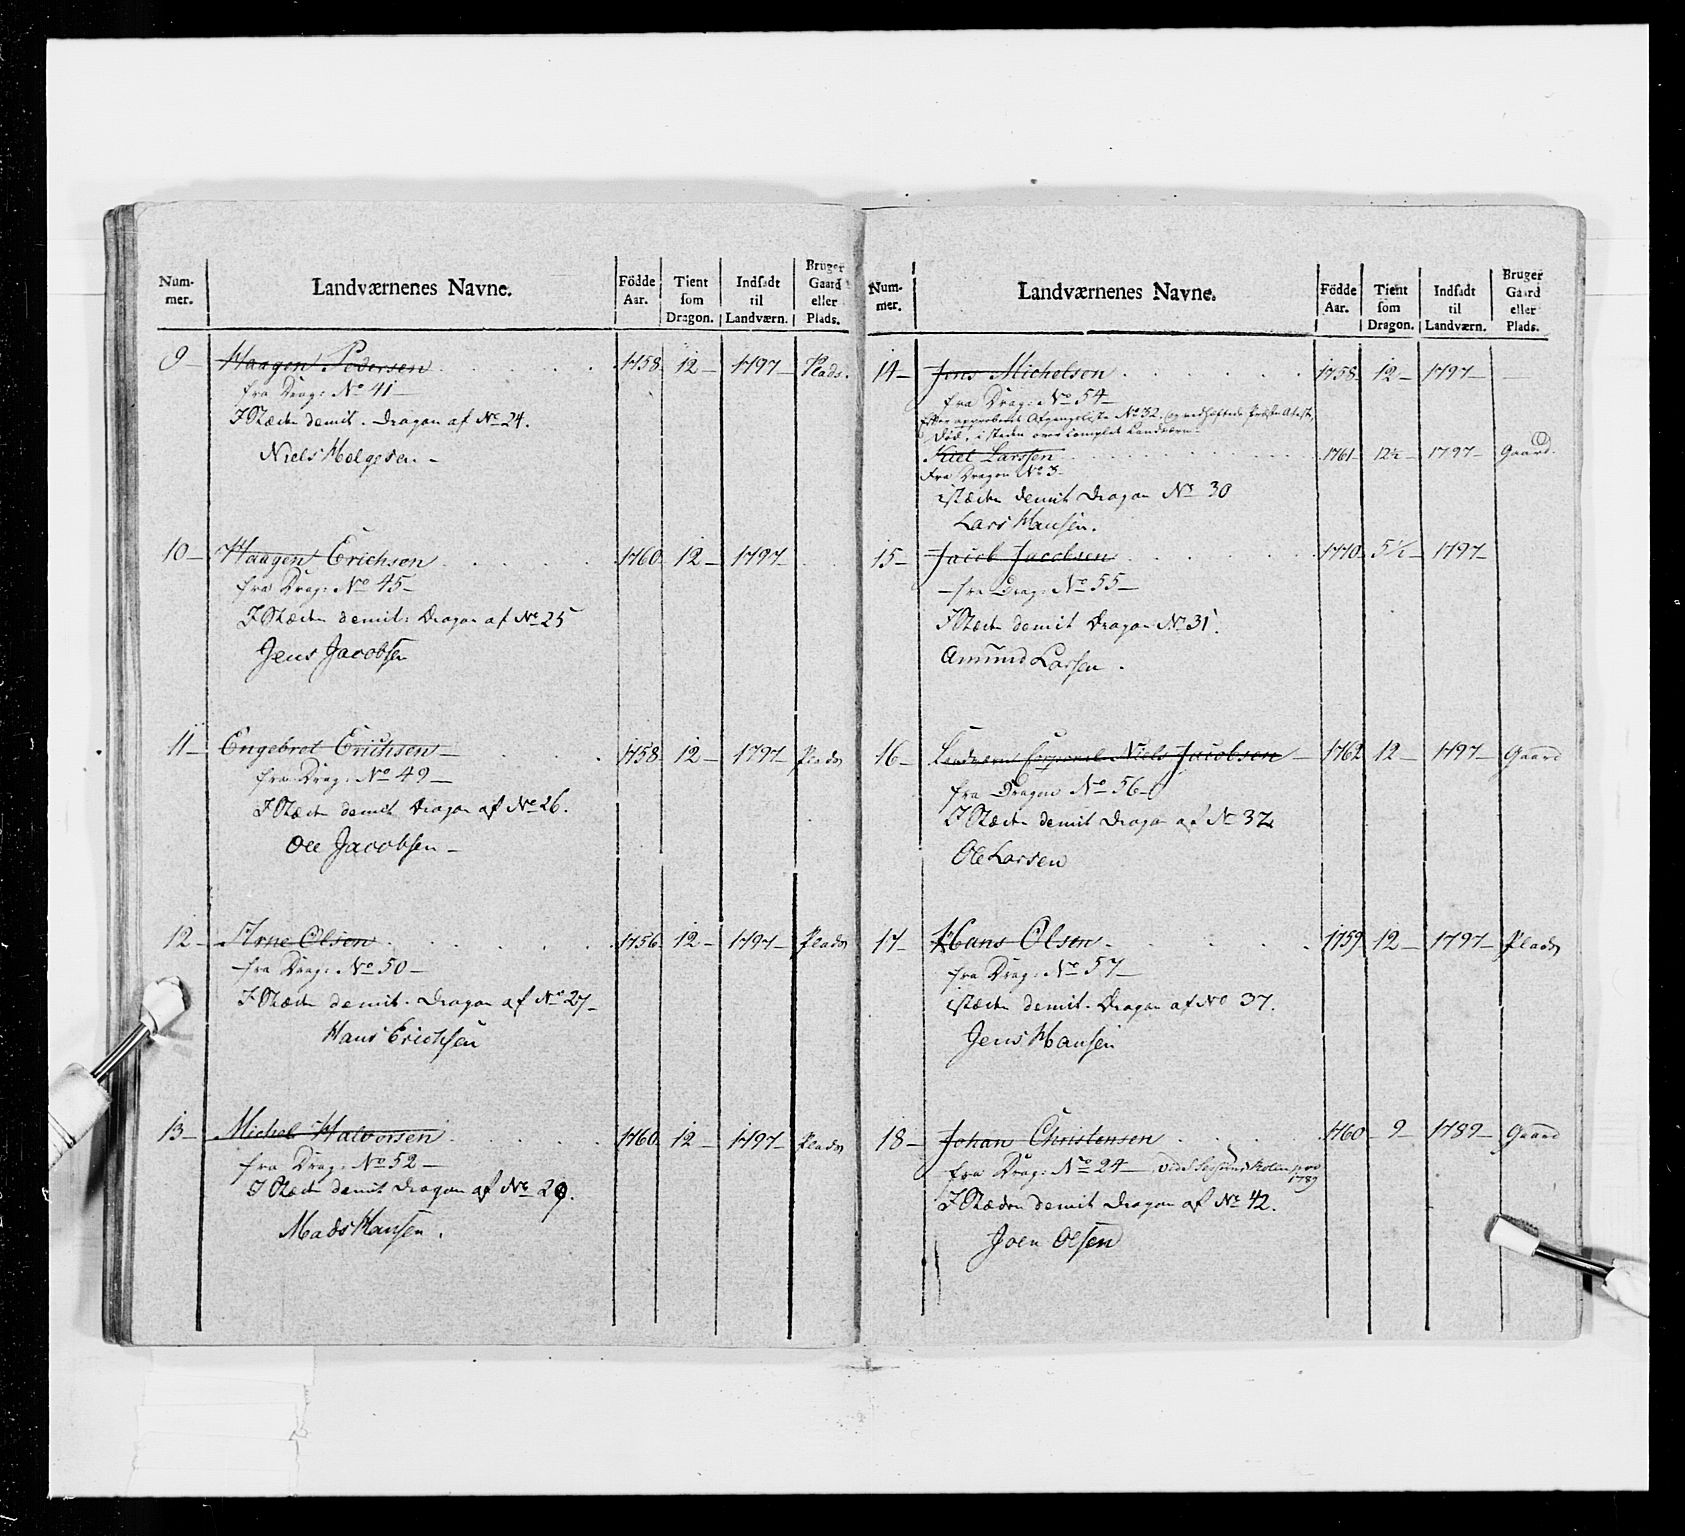 Num-
mer.
Landværnenes Navne.
Födde
Aar.
Tient
som
Dragon.
Indsadt
til
Landværn.
Bruger
Gaard
eller
Plads.
9 – Haagen Pedersen 1758 12 – 1797 – Plads.
fra Drag: No 41 –
I Stæden demit. Dragon af No 24.
Niels Holgesen. –
10 – Haagen Erichsen 1760 12 – 1797
fra Drag: No 45 –
I Stæden demit: Dragon af No 25
Jens Jacobsen
11 – Engebret Erichsen – 1758 12 – 1797 Plads
fra Drag: No 49 –
I Stæden demit Dragon af No 26.
Ole Jacobsen –
12 – Arne Olsen 1756 12 – 1797 – Plads
fra Drag: No 50 –
I Stæden demit. Dragon af No 27 –
Hans Erichsen
13 – Michel Halvorsen 1760 12 – 1797 – Plads
fra Drag: No 52 –
I Stæden demit Dragon af No 29.
Mads Hansen.
Num-
mer.
Landværnenes Navne.
Födde
Aar.
Tient
som
Dragon.
Indsadt
til
Landværn.
Bruger
Gaard
eller
Plads.
14 – Jens Michelsen 1758 12 – 1797 –
fra Drag: No 54 –
Efter approberet Afgangsliste No 32, og vedheftede Præste Atest,
Död, i steden over complet Landværn:
Kiel Larssen 1761 12½ 1797 – Gaard.
Fra Dragon No 3
istæden demit Dragon No 30
Lars Hansen.
15 – Jacob Jacobsen 1770 5½ – 1797
fra Drag: No 55 –
I Stæden demit Dragon No 31.
Amund Larsen.
16 – Landværn Corporal Niels Jacobsen – 1762 12 – 1797 – Gaard
fra Dragon No 56 –
I Stæden demit Dragon af No 32
Ole Larsen
17 – Hans Olsen 1759 12 – 1797 – Plads
fra Drag: No 57 –
istæden demit. Dragon af No 37.
Jens Hansen
18 – Johan Christensen 1760 – 9 – 1789 – Gaard
fra Drag: No 24 – ved Sessions Rollen pro
1789
I Stæden demit Dragon af No 42.
Joen Olsen